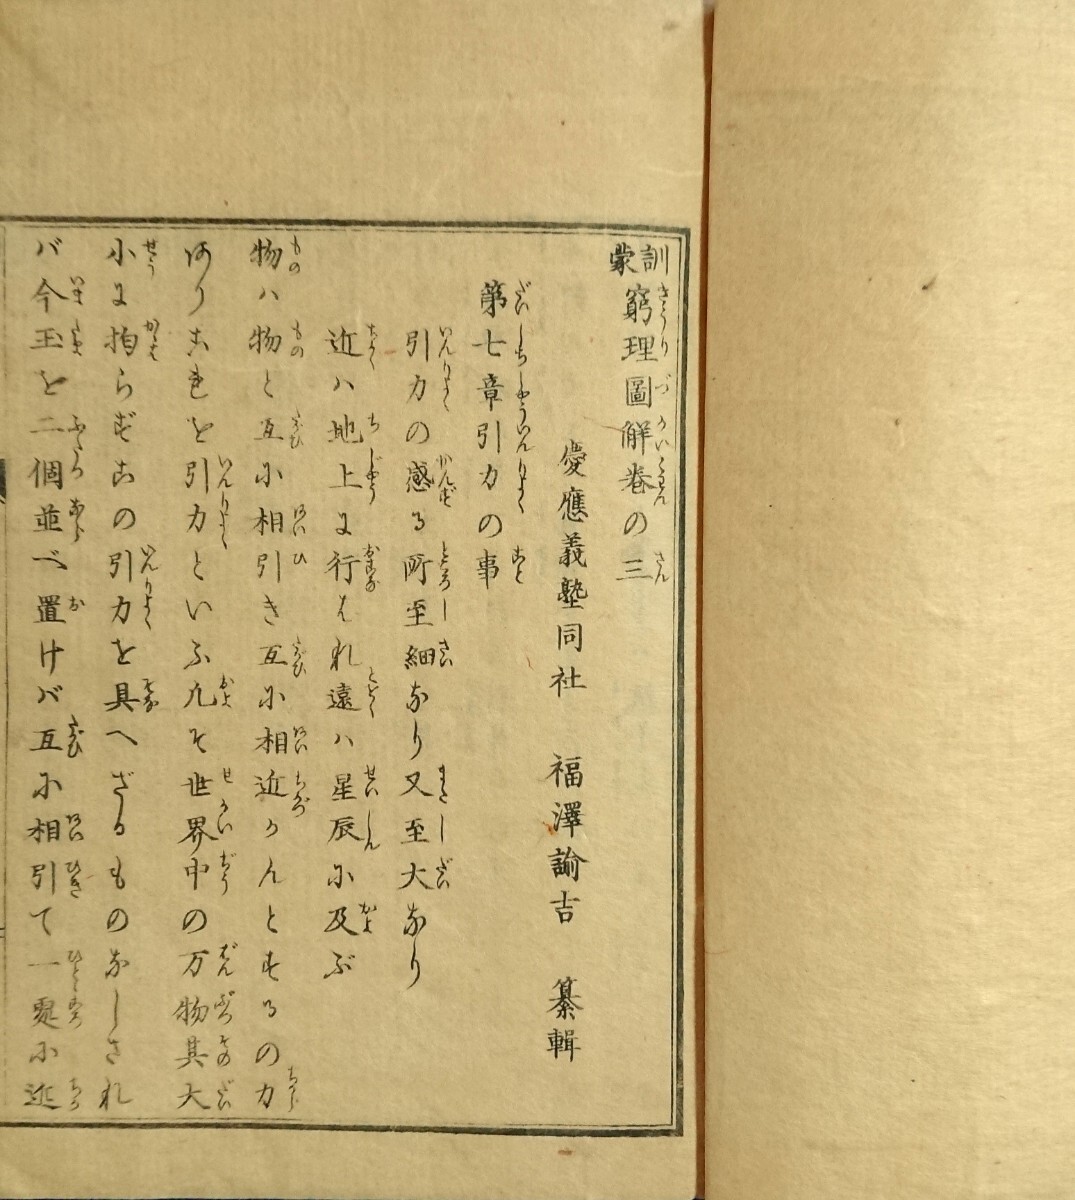 訓蒙窮理圖解卷の三
慶應義塾同社 福澤諭吉 纂輯
第七章引力の事
引力の感る所至細なり又至大なり
近ハ地上に行はれ遠ハ星辰に及ぶ
物ハ物と互に相引き互に相近かんとするの力
ありこれを引力といふ凡そ世界中の万物其大
小に拘らずこの引力を具へざるものなしされ
バ今玉を二個並べ置けバ互に相引て一處に近